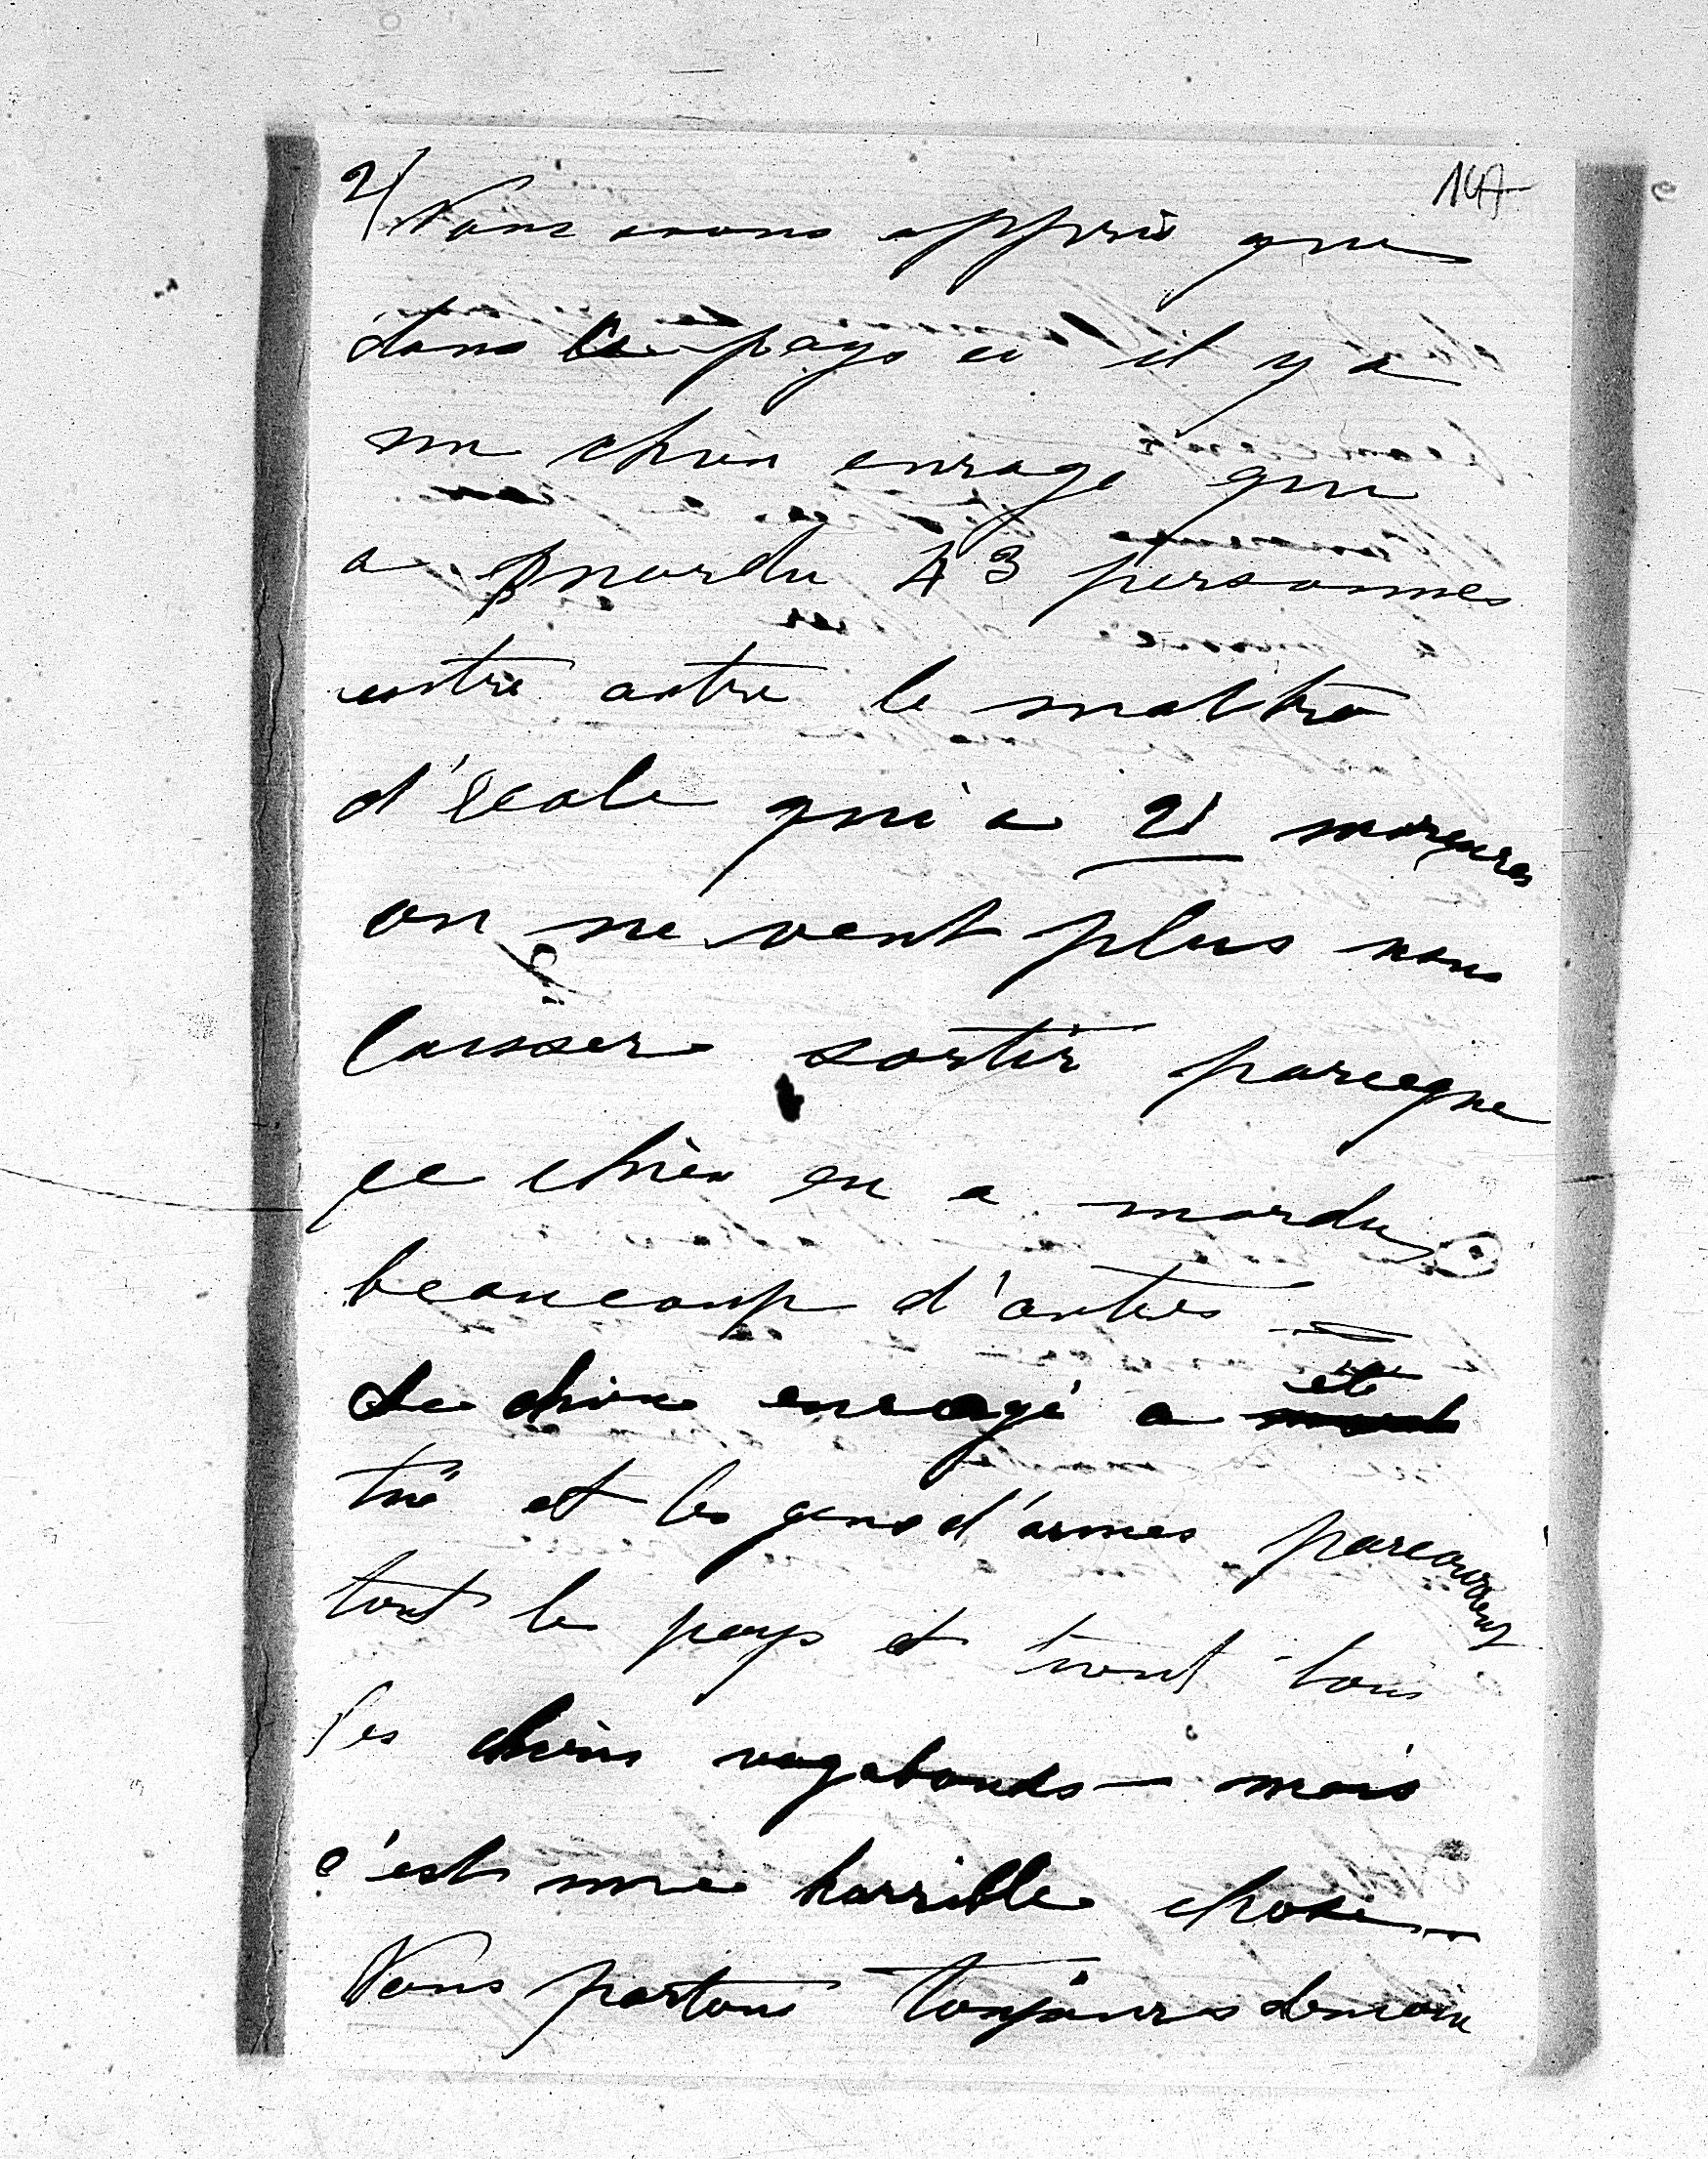 2/ 147
Nous avons appris que
dans le pays ci il y a
un chien enragé qui
a mordu 43 personnes
entre autre le maître
d'école qui a 21 morsures
on ne veut plus nous
laisser sortir parceque
ce chien en a mordu
beaucoup d'autres —
Le chien enragé a été
tué et les gens d'armes parcourent
tout le pays et tuent tous
les chiens vagabonds — mais
c'est une horrible chose —
Nous partons toujours demain